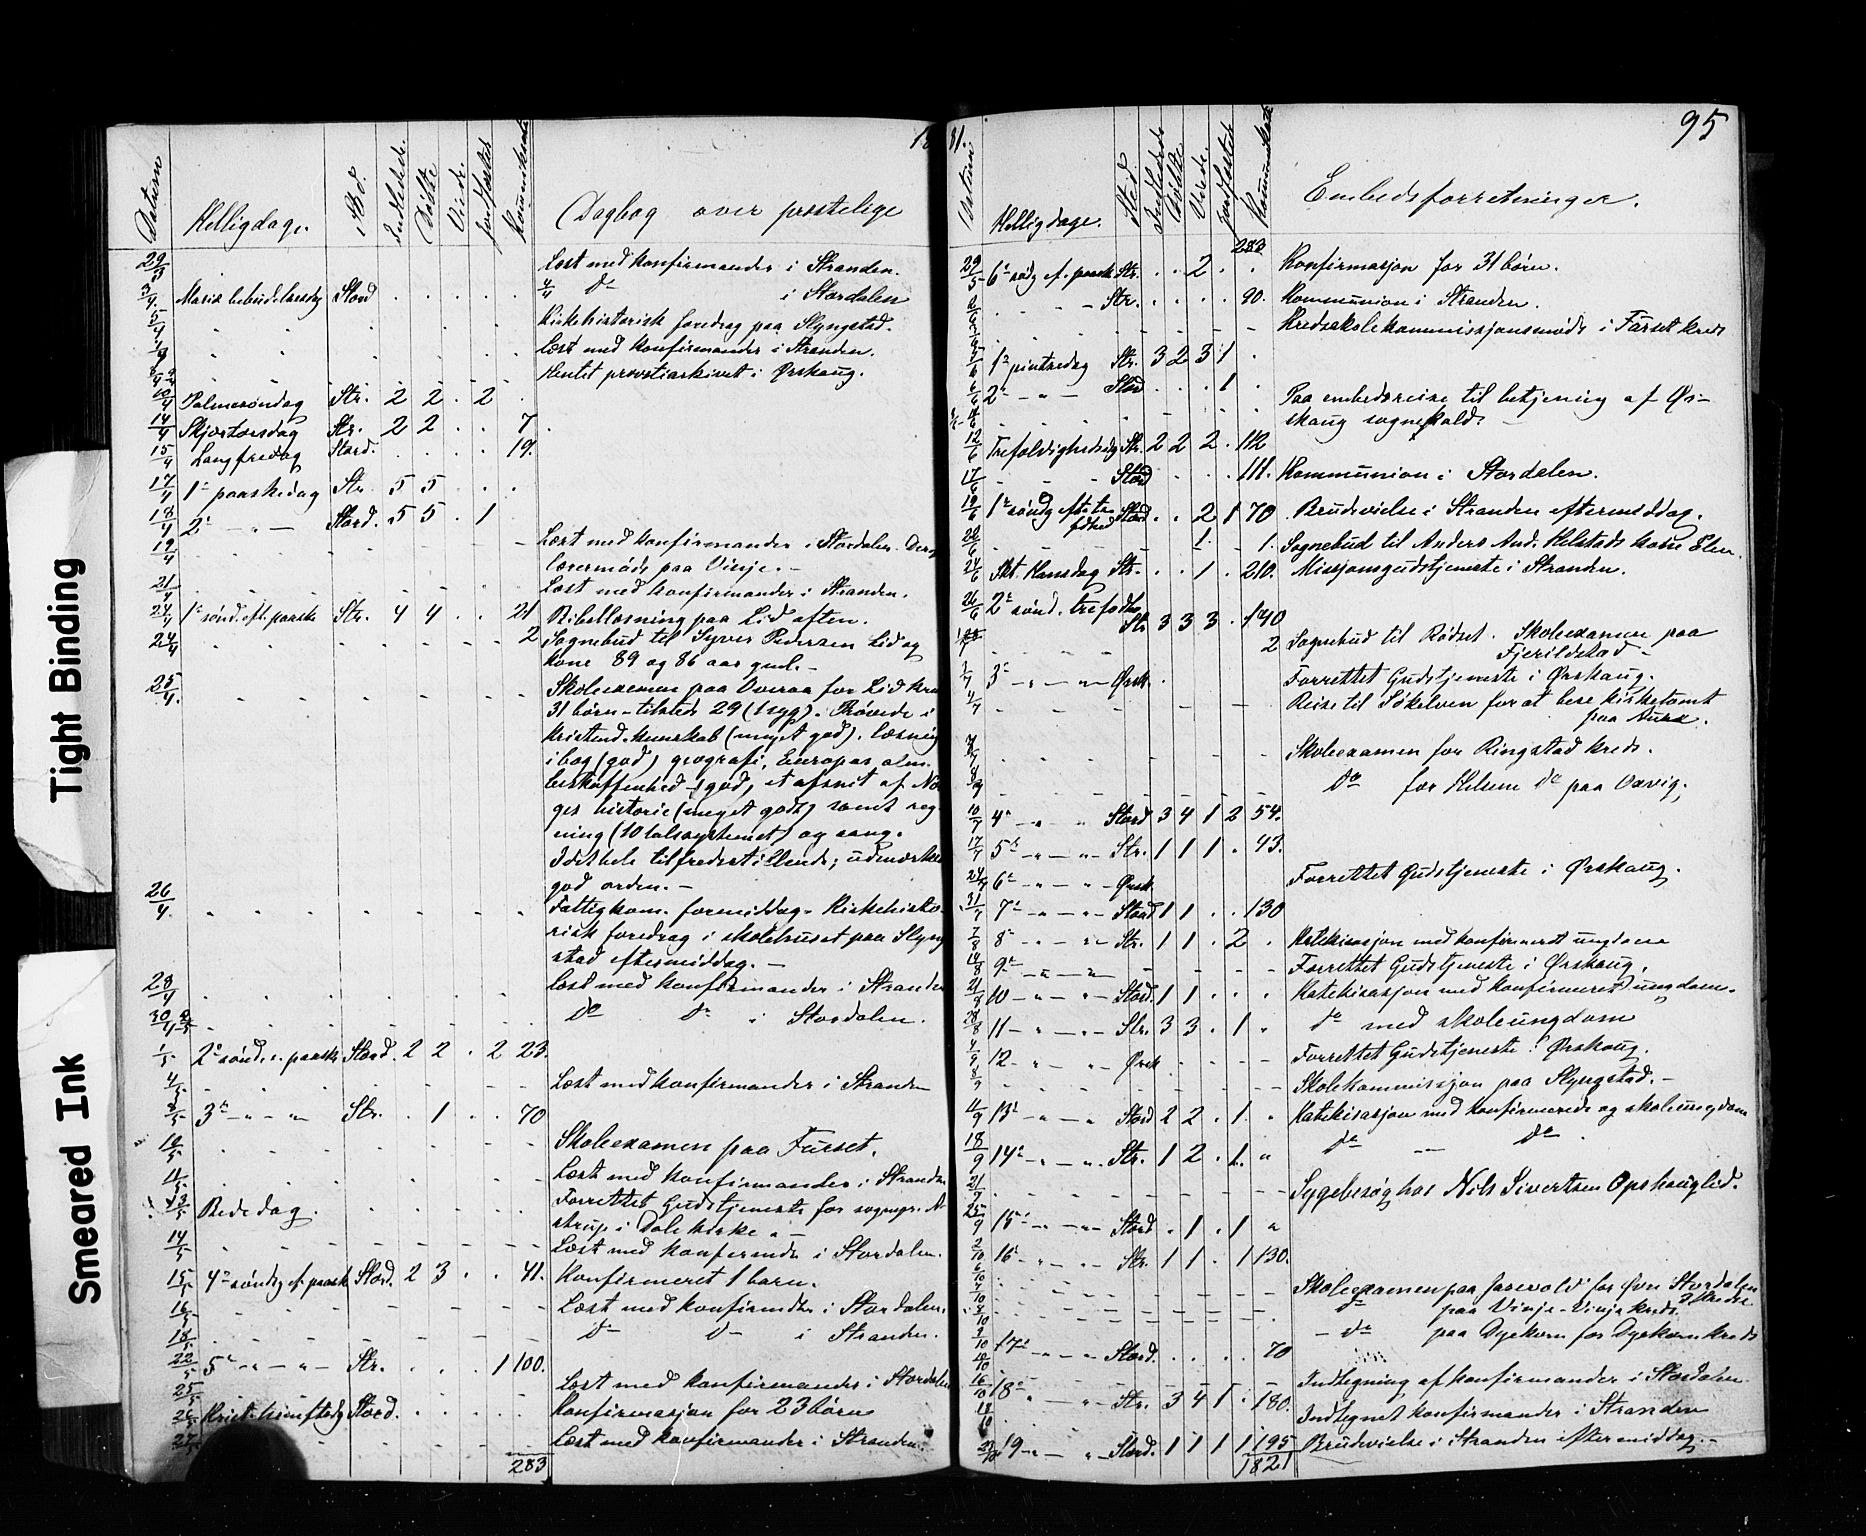 Tight Binding
Smeared Ink
18
Datum Helligdage. Sted. Indledede Døbte Viede. Jordfæstede Kommunikanter Dagbog over prestelige
29/3 Læst med konfirmander i Stranden.
2/4 Mariæ bebudelsesdag Stord . . . . . do i Stordalen
5/4 Kirkehistorisk foredrag paa Slyngstad.
Læst med konfirmander i Stranden.
Hentet provstiarkivet i Ørskaug.
10/4 Palmesøndag Str. 2 2 . 2 .
14/4 Skjærtorsdag Str. 2 2 . . 7.
15/4 Langfredag Stord. . . . . 19.
17/4 1ste paaskedag Str. 5 5 . .
18/4 2den — " — Stord. 5 5 . 1
19/4 Læst med konfirmander i Stordalen.
lærermøde paa Vinje. —
21/4 Læst med konfirmander i Stranden.
24/4 1ste sønd. eft. paaske Str. 4 4 . . 21 Bibellæsning paa Lid aften.
24/4 2 Sognebud til Syver Pedersen Lid og
kone 89 og 86 aar gml. —
25/4. Skoleexamen paa Overaa for Lid kreds
31 børn – tilstede 29 (1 syg). Prøvede i
kristend. kundskab (meget god), læsning
i bog (god) geografi, Europas alm.
beskaffenhed (god), et afsnit af Nor-
ges historie (meget godt) samt reg-
ning (10talsystemet) og sang.
I det hele tilfredsstillende; udmærket
god orden. —
26/4. Fattigkom. formiddag. Kirkehisto-
risk foredrag i skolehuset paa Slyng-
stad eftermiddag. —
28/4 Læst med konfirmander i Stranden
30/4 do do i Stordalen.
1/5. 2den sønd. e. paaske Stord. 2 2 . 2 23.
4/5. Læst med konfirmander i Stranden
8/5 3de — " — " Str. . 1 . . 70
10/5. Skoleexamen paa Furset.
11/5. Læst med konfirmander i Stranden
13/5 Bededag. Forrettet Gudstjeneste for sogнepr.
i Dale kirke. —
14/5 Læst med konfirmder i Stordalen.
15/5 4de søndg ef. paask Stord. 2 3 . . 41. Konfirmeret 1 barn.
16/5 Læst med konfirmder i Stordalen.
18/5. do do i Stranden.
22/5 5te — " — " — Str. . . . 1 100.
25/5 Læst med konfirmander i Stordalen
26/5 Krist. himftdg Stord. . Konfirmasjon for 23 børn
27/5 Læst med konfirmander i Stranden
283
81. 95
Datum Helligdage. Sted. Indledede Døbte Viede. Jordfæstede Kommunikanter Embedsforretninger.
283
29/5 6te sødg ef. paask Str. . . 2 . . Konfirmasjon for 31 børn.
— Str. . . . . 90. Kommunion i Stranden.
Kredsskolekommissjonsmøde i Furset kreds
5/6 1ste pintsedag Str. 3 2 3 1 .
6/6 2den — " — Stord . . . 1 . Paa embedsreise til betjening af Ør-
skaug sognekald.
12/6 Trefoldighedsdg Str. 2 2 2 . 112
17/6 Stord . . . . 111. Kommunion i Stordalen.
19/6 1ste søndg eft. tre- Stord. . . 2 1 70 Brudevielse i Stranden eftermiddag.
1. 1. Sognebud til Anders And. Helstads kone Elen.
24/6 Skt. Hansdag Str. . . 1 . 210. Missjonsgudstjeneste i Stranden.
26/6 2den sønd. trefoldh. Str 3 3 3 . 140
2 Sognebud til Rødset. Skoleexamen paa
Fjerildstad —
3/7 3de — " — " — Ørsk. . Forrettet Gudstjeneste i Ørskaug.
4/7 Reise til Søkelven for at bese kirketomt
paa Aure.
Skoleexamen for Ringstad kreds.
do for Helsem do paa Vavig,
10/7 4de — " " Stord 3 4 1 2 54.
17/7 5te — " — " — Str. 1 1 1 . 43.
24/7 6te — " — " — Ørsk Forrettet Gudstjeneste i Ørskaug.
31/7 7de — " — " — Stord 1 1 . . 130
7/8 8de — " — " — Str. 1 1 . 2 . Katekisasjon med konfirmeret ungdom
14/8 9de — " — " — Forrettet Gudstjeneste i Ørskaug.
21/8 10 — " — " — Stord. 1 1 . . . Katekisasjon med konfirmeret ungdom.
28/8 11 — " — " — Str. 3 3 . 1 . do med skoleungdom
4/9 12 — " — " Ørsk Forrettet Gudstjeneste i Ørskaug.
8/9 Skolekommissjon paa Slyngstad. —
11/9 13de — " — " Stord 2 2 . 1 . Katekisasjon med konfirmerede og skoleungdom
18/9 14de — " — " — Str. 1 2 . 1. " do — do .
21/9 Sygebesøg hos Nils Sivertsen Opskauglid.
25/9 15de — " — " — Stord . 1 . 1 "
2/10 16de — " — " — Str. 1 1 . 1 130.
Skoleexamen paa for Øvre Stordalen
do paa Vinje – Vinje kreds.
— do paa Dyrkorn for Dyrkorn kreds
9/10 17de — " — " Stord. . . . . 70
Indtegning af konfirmander i Stordalen
16/10 18de " — " Str. 3 4 1 . 180.
Indtegnet konfirmander i Stranden
23/10 19 — " — " — Stord. 1 1 1 1 195 Brudevielse i Stranden eftermiddag. —
1821